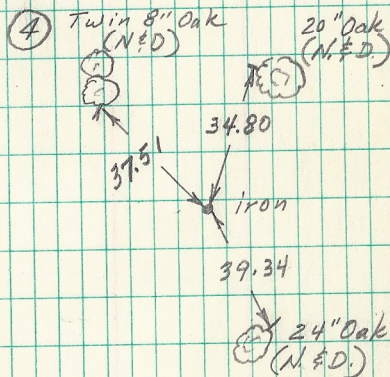 ④ Twin 8" Oak
(N & D)
20" Oak
(N. & D.)
34.80
37.51
iron
39.34
24" Oak
(N. & D.)